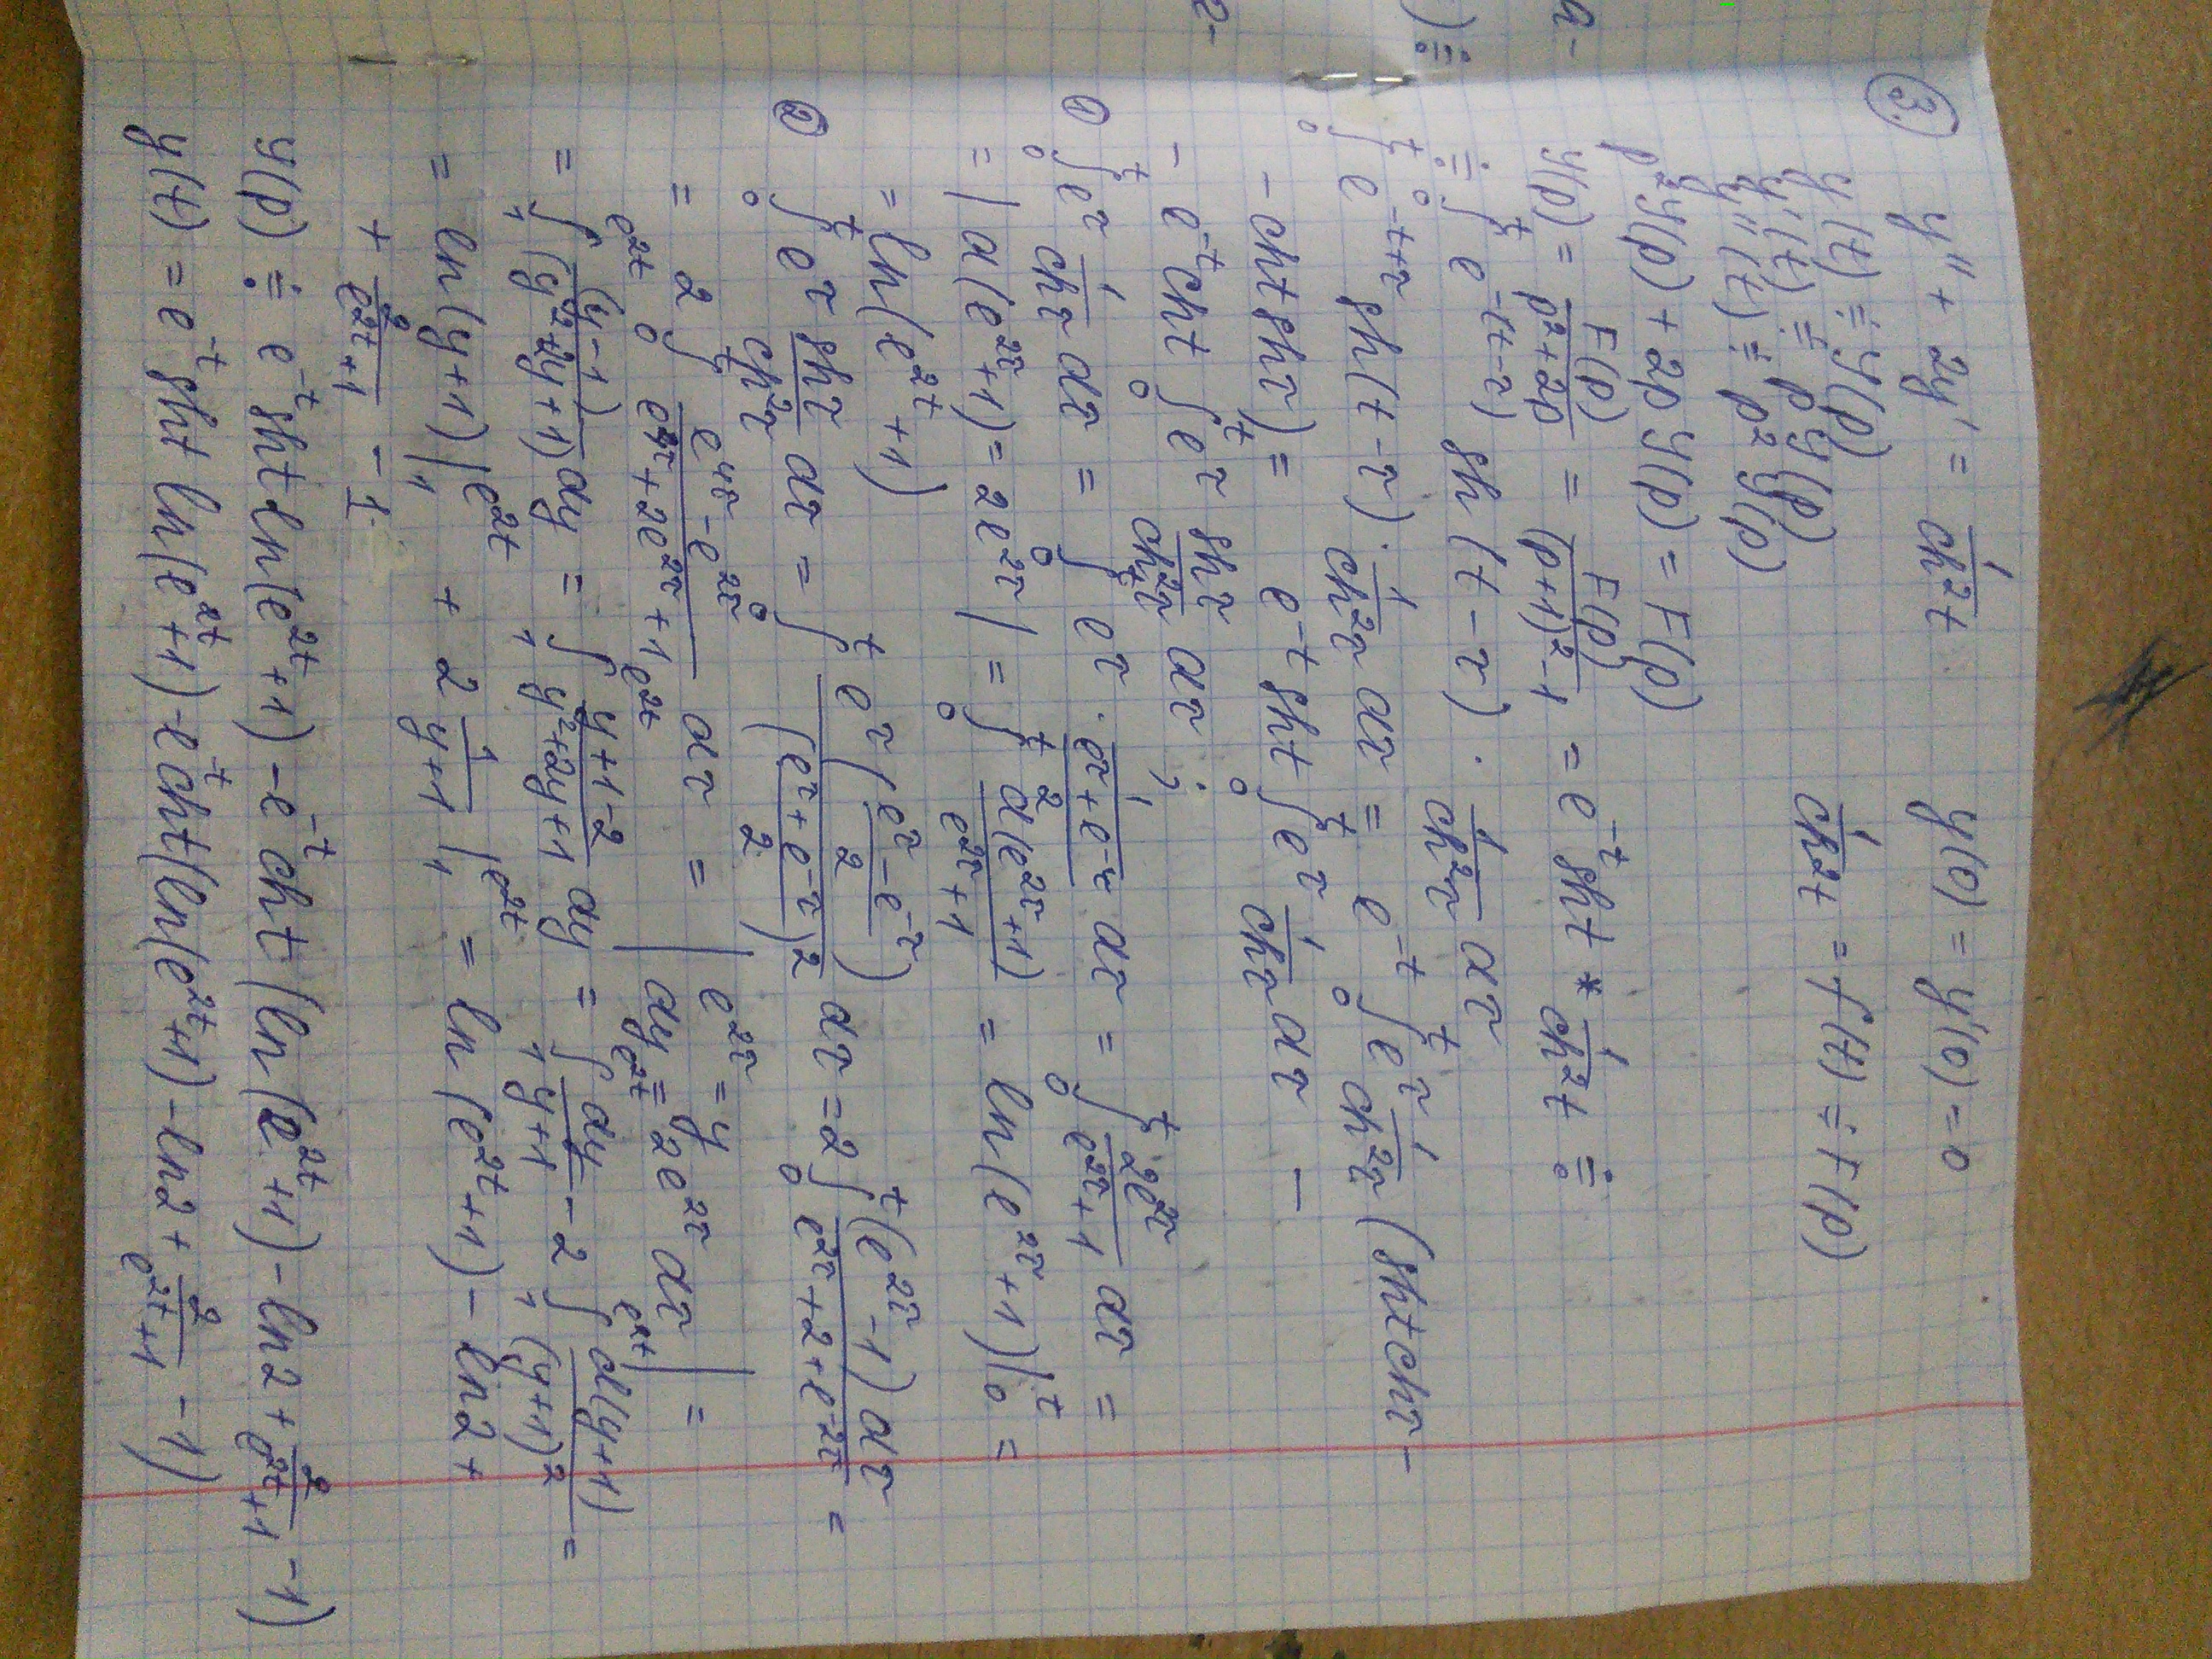 ③ y'' + 2y' = 1/ch²t y(0) = y'(0) = 0
y(t) ≓ Y(p)
y'(t) ≓ pY(p) 1/ch²t = f(t) ≓ F(p)
y''(t) ≓ p²Y(p)
p²Y(p) + 2pY(p) = F(p)
Y(p) = F(p)/(p²+2p) = F(p)/((p+1)²-1) = e^{-t} sht * 1/ch²t ≓
≓ ∫₀^t e^{-(t-τ)} sh(t-τ) · 1/ch²τ dτ
∫₀^t e^{-t+τ} sh(t-τ) · 1/ch²τ dτ = e^{-t} ∫₀^t e^τ 1/ch²τ (sht chτ -
- cht shτ) = e^{-t} sht ∫₀^t e^τ 1/chτ dτ -
- e^{-t} cht ∫₀^t e^τ shτ/ch²τ dτ ;
① ∫₀^t e^τ 1/chτ dτ = ∫₀^t e^τ · 1/((e^τ+e^{-τ})/2) dτ = ∫₀^t 2e^{2τ}/(e^{2τ}+1) dτ =
= |d(e^{2τ}+1) = 2e^{2τ}| = ∫₀^t d(e^{2τ}+1)/(e^{2τ}+1) = ln(e^{2τ}+1)|₀^t =
= ln(e^{2t}+1)
② ∫₀^t e^τ shτ/ch²τ dτ = ∫₀^t e^τ((e^τ-e^{-τ})/2)/((e^τ+e^{-τ})/2)² dτ = 2∫₀^t (e^{2τ}-1)dτ/(e^{2τ}+2+e^{-2τ}) =
= 2∫₀^t (e^{4τ}-e^{2τ})/(e^{4τ}+2e^{2τ}+1) dτ = |e^{2τ} = y dy = 2e^{2τ}dτ| =
= ∫₁^{e^{2t}} (y-1)/(y²+2y+1) dy = ∫₁^{e^{2t}} (y+1-2)/(y²+2y+1) dy = ∫₁^{e^{2t}} dy/(y+1) - 2∫₁^{e^{2t}} d(y+1)/(y+1)² =
= ln(y+1)|₁^{e^{2t}} + 2 1/(y+1)|₁^{e^{2t}} = ln(e^{2t}+1) - ln2 +
+ 2/(e^{2t}+1) - 1
Y(p) ≓ e^{-t} sht · ln(e^{2t}+1) - e^{-t} cht(ln(e^{2t}+1) - ln2 + 2/(e^{2t}+1) - 1)
y(t) = e^{-t} sht ln(e^{2t}+1) - e^{-t} cht(ln(e^{2t}+1) - ln2 + 2/(e^{2t}+1) - 1)